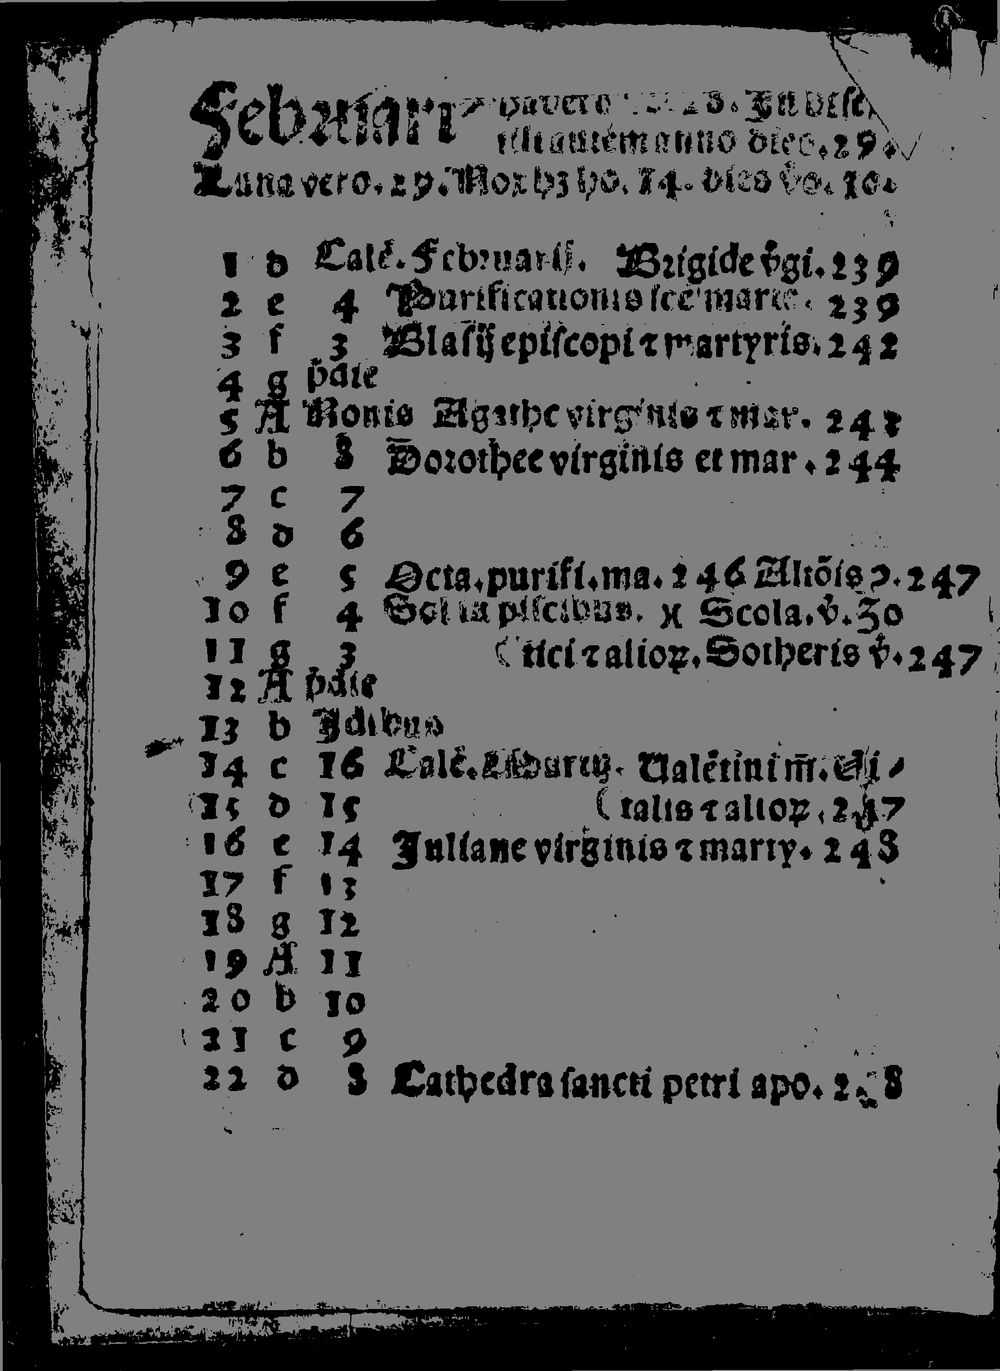 Februari⁹ habet dies .28. In bise
illi autem anno dies .29.
Luna vero .29. Nox hȝ ho. 14. dies v̄o. 10.
1 d Calē. Februarij. Brigide v̄gi. 239
2 e 4 Purificationis scē marie. 239
3 f 3 Blasij episcopi ⁊ martyris. 242
4 g pdie
5 A Nonis Agathe virginis ⁊ mar. 242
6 b 8 Dorothee virginis et mar. 244
7 c 7
8 d 6
9 e 5 Octa. purifi. ma. 246 247
10 f 4 Sol in piscibus. Scola. v̄. 30
11 g 3 (tici ⁊ alioꝝ. Sotheris v̄. 247
12 A pdie
13 b Idibus
14 c 16 Calē. Martij. Ualētini m̄. Ui
15 d 15 (talis ⁊ alioꝝ. 247
16 e 14 Juliane virginis ⁊ marty. 248
17 f 13
18 g 12
19 A 11
20 b 10
21 c 9
22 d 8 Cathedra sancti petri apo.